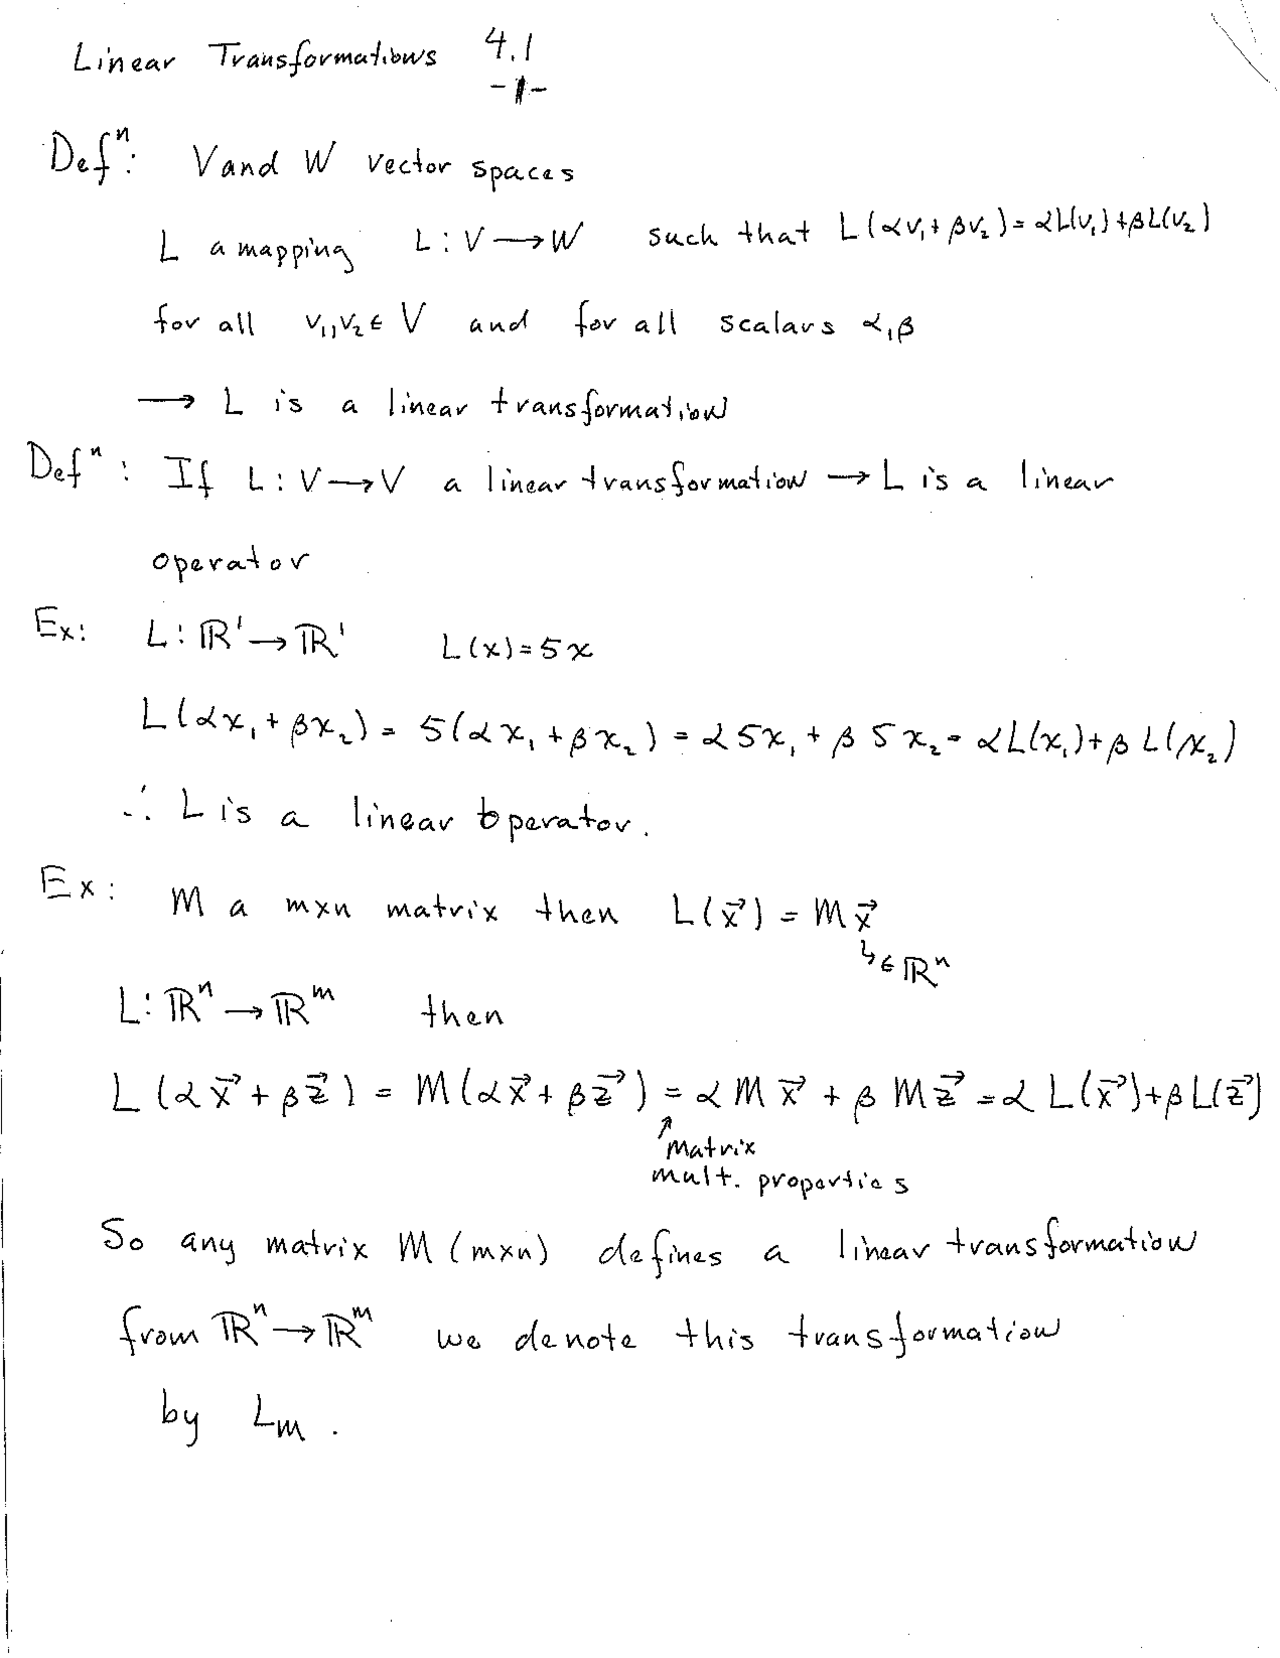 Linear Transformations 4.1
-1-
Defⁿ: V and W vector spaces
L a mapping L: V → W such that L(αv₁ + βv₂) = αL(v₁) + βL(v₂)
for all v₁, v₂ ∈ V and for all scalars α, β
→ L is a linear transformation
Defⁿ: If L: V → V a linear transformation → L is a linear
operator
Ex: L: ℝ¹ → ℝ¹ L(x) = 5x
L(αx₁ + βx₂) = 5(αx₁ + βx₂) = α5x₁ + β5x₂ = αL(x₁) + βL(x₂)
∴ L is a linear operator.
Ex: M a mxn matrix then L(x⃗) = Mx⃗
↳ ∈ ℝⁿ
L: ℝⁿ → ℝᵐ then
L(αx⃗ + βz⃗) = M(αx⃗ + βz⃗) = αMx⃗ + βMz⃗ = αL(x⃗) + βL(z⃗)
↗
Matrix
mult. properties
So any matrix M (mxn) defines a linear transformation
from ℝⁿ → ℝᵐ we denote this transformation
by L_M.